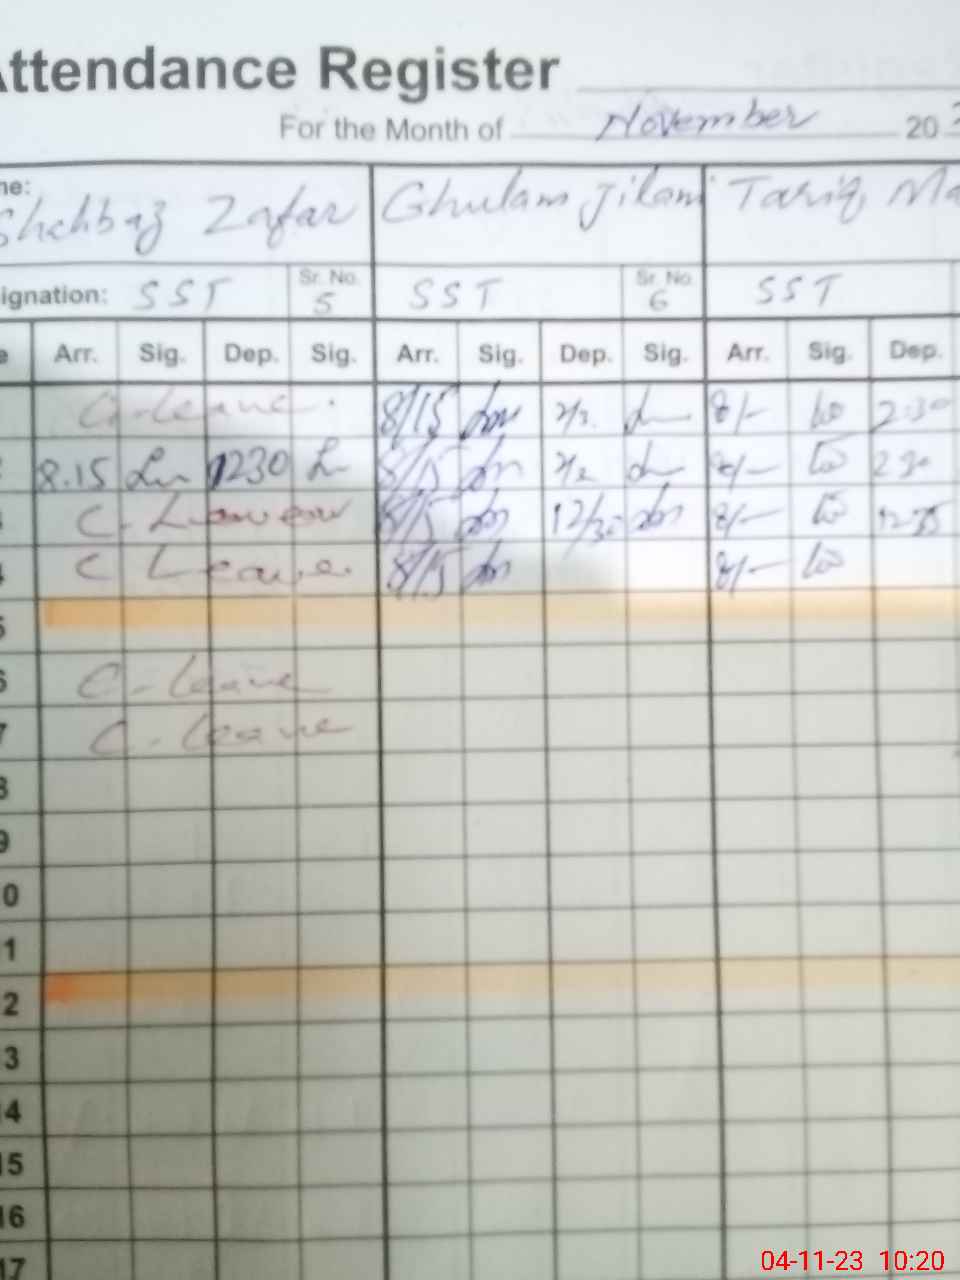 Attendance Register
For the Month of November 20
Shehbaz Zafar Ghulam Jilani Tariq Ma
ignation: SST Sr. No. 5 SST Sr. No. 6 SST
Arr. Sig. Dep. Sig. Arr. Sig. Dep. Sig. Arr. Sig. Dep.
C-leave. 8/15 8/- 2:30
8.15 1230 8/15 8/- 2 30
C. 8/15 12/30 8/- 12-35
4 C Leave. 8/15 8/-
5
6 C-leave
7 C. leave
8
9
0
1
2
3
14
15
16
17
04-11-23 10:20